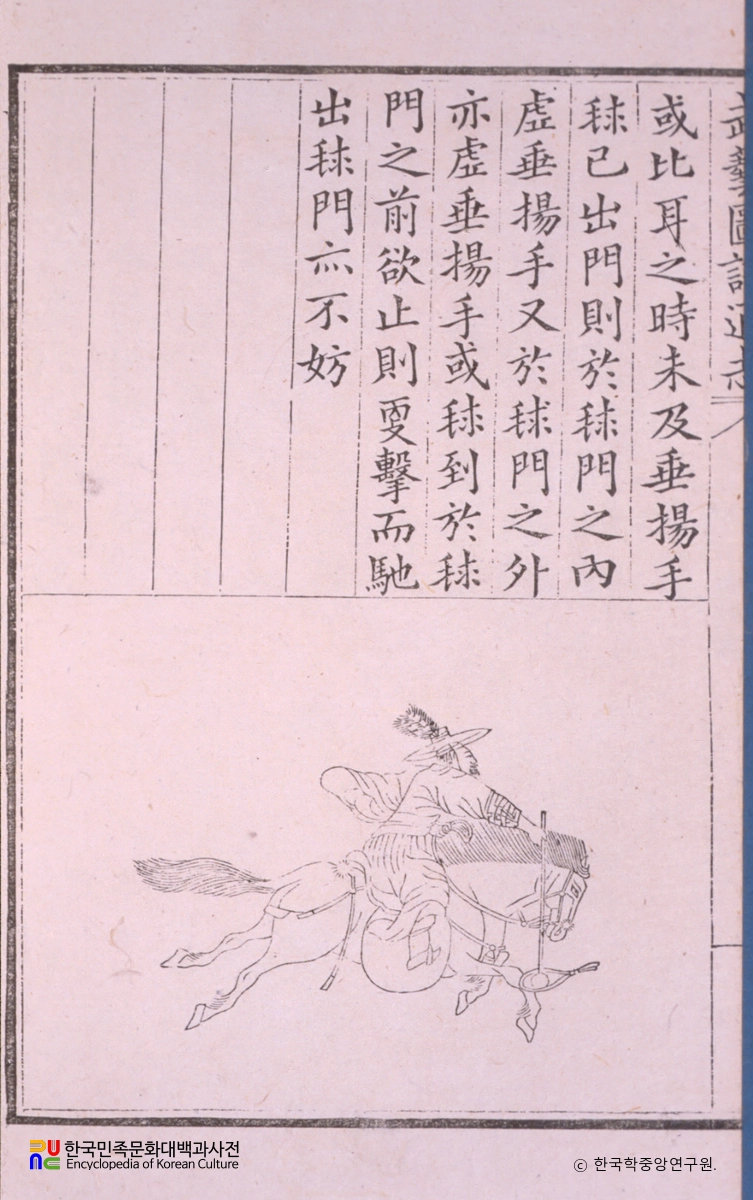 武藝圖譜通志
或比耳之時未及垂揚手
毬已出門則於毬門之內
虛垂揚手又於毬門之外
亦虛垂揚手或毬到於毬
門之前欲止則更擊而馳
出毬門亦不妨
한국민족문화대백과사전
Encyclopedia of Korean Culture
ⓒ 한국학중앙연구원.